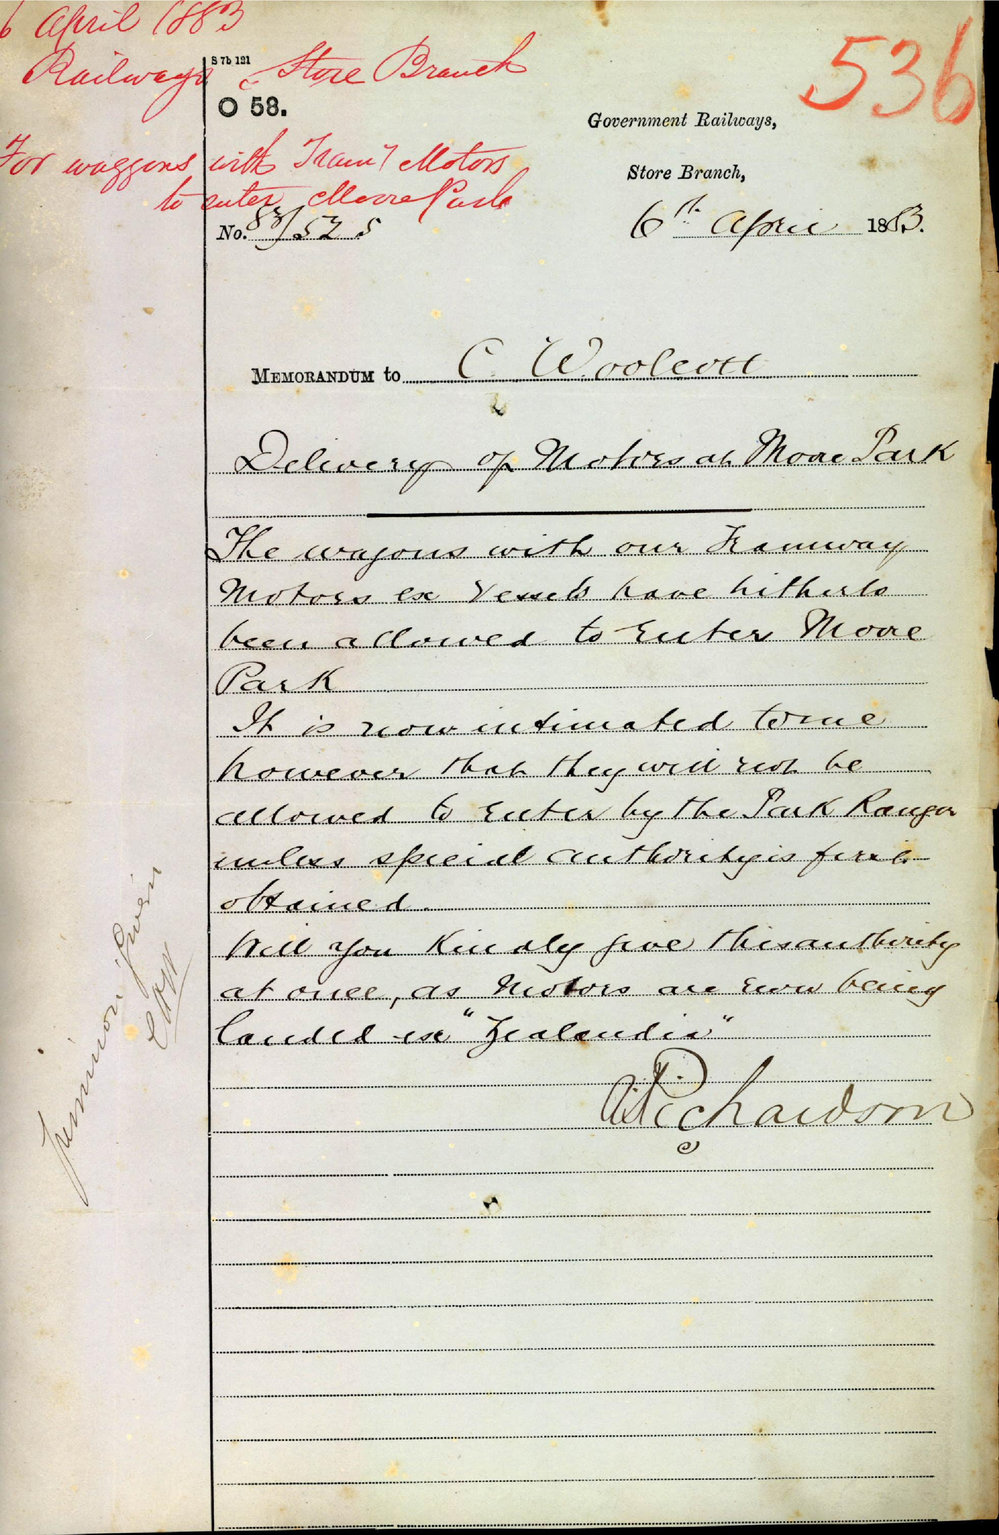 6 April 1883
Railways Store Branch
S 7b 121
O 58.
536
Government Railways,
Store Branch,
For waggons with Tramy Motors
to enter Moore Park
No. 83/525
6th April 1883.
MEMORANDUM to C Woolcott
Delivery of Motors at Moore Park
The wagons with our Tramway
Motors ex Vessels have hitherto
been allowed to Enter Moore
Park
It is now intimated to me
however that they will not be
allowed to Enter by the Park Ranger
unless special authority is first
obtained.
Will you Kindly give this authority
at once, as Motors are now being
landed ex "Zealandia"
Richardson
Permission given